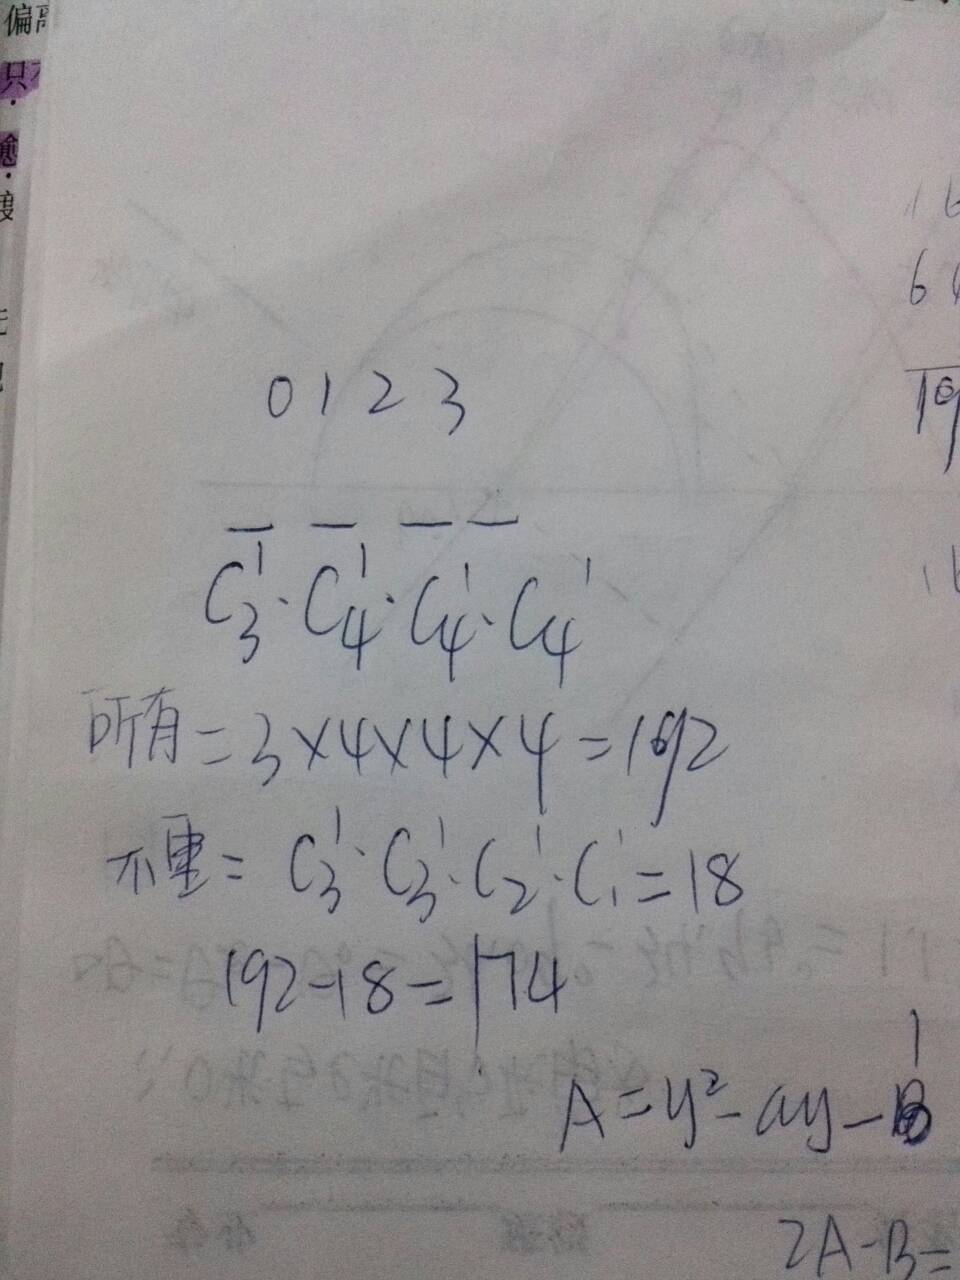 偏
只
愈
0 1 2 3
C₃¹·C₄¹·C₄¹·C₄¹
所有=3×4×4×4=192
不重=C₃¹·C₃¹·C₂¹·C₁¹=18
192-18=174
A=y²-ay-
2A-B=